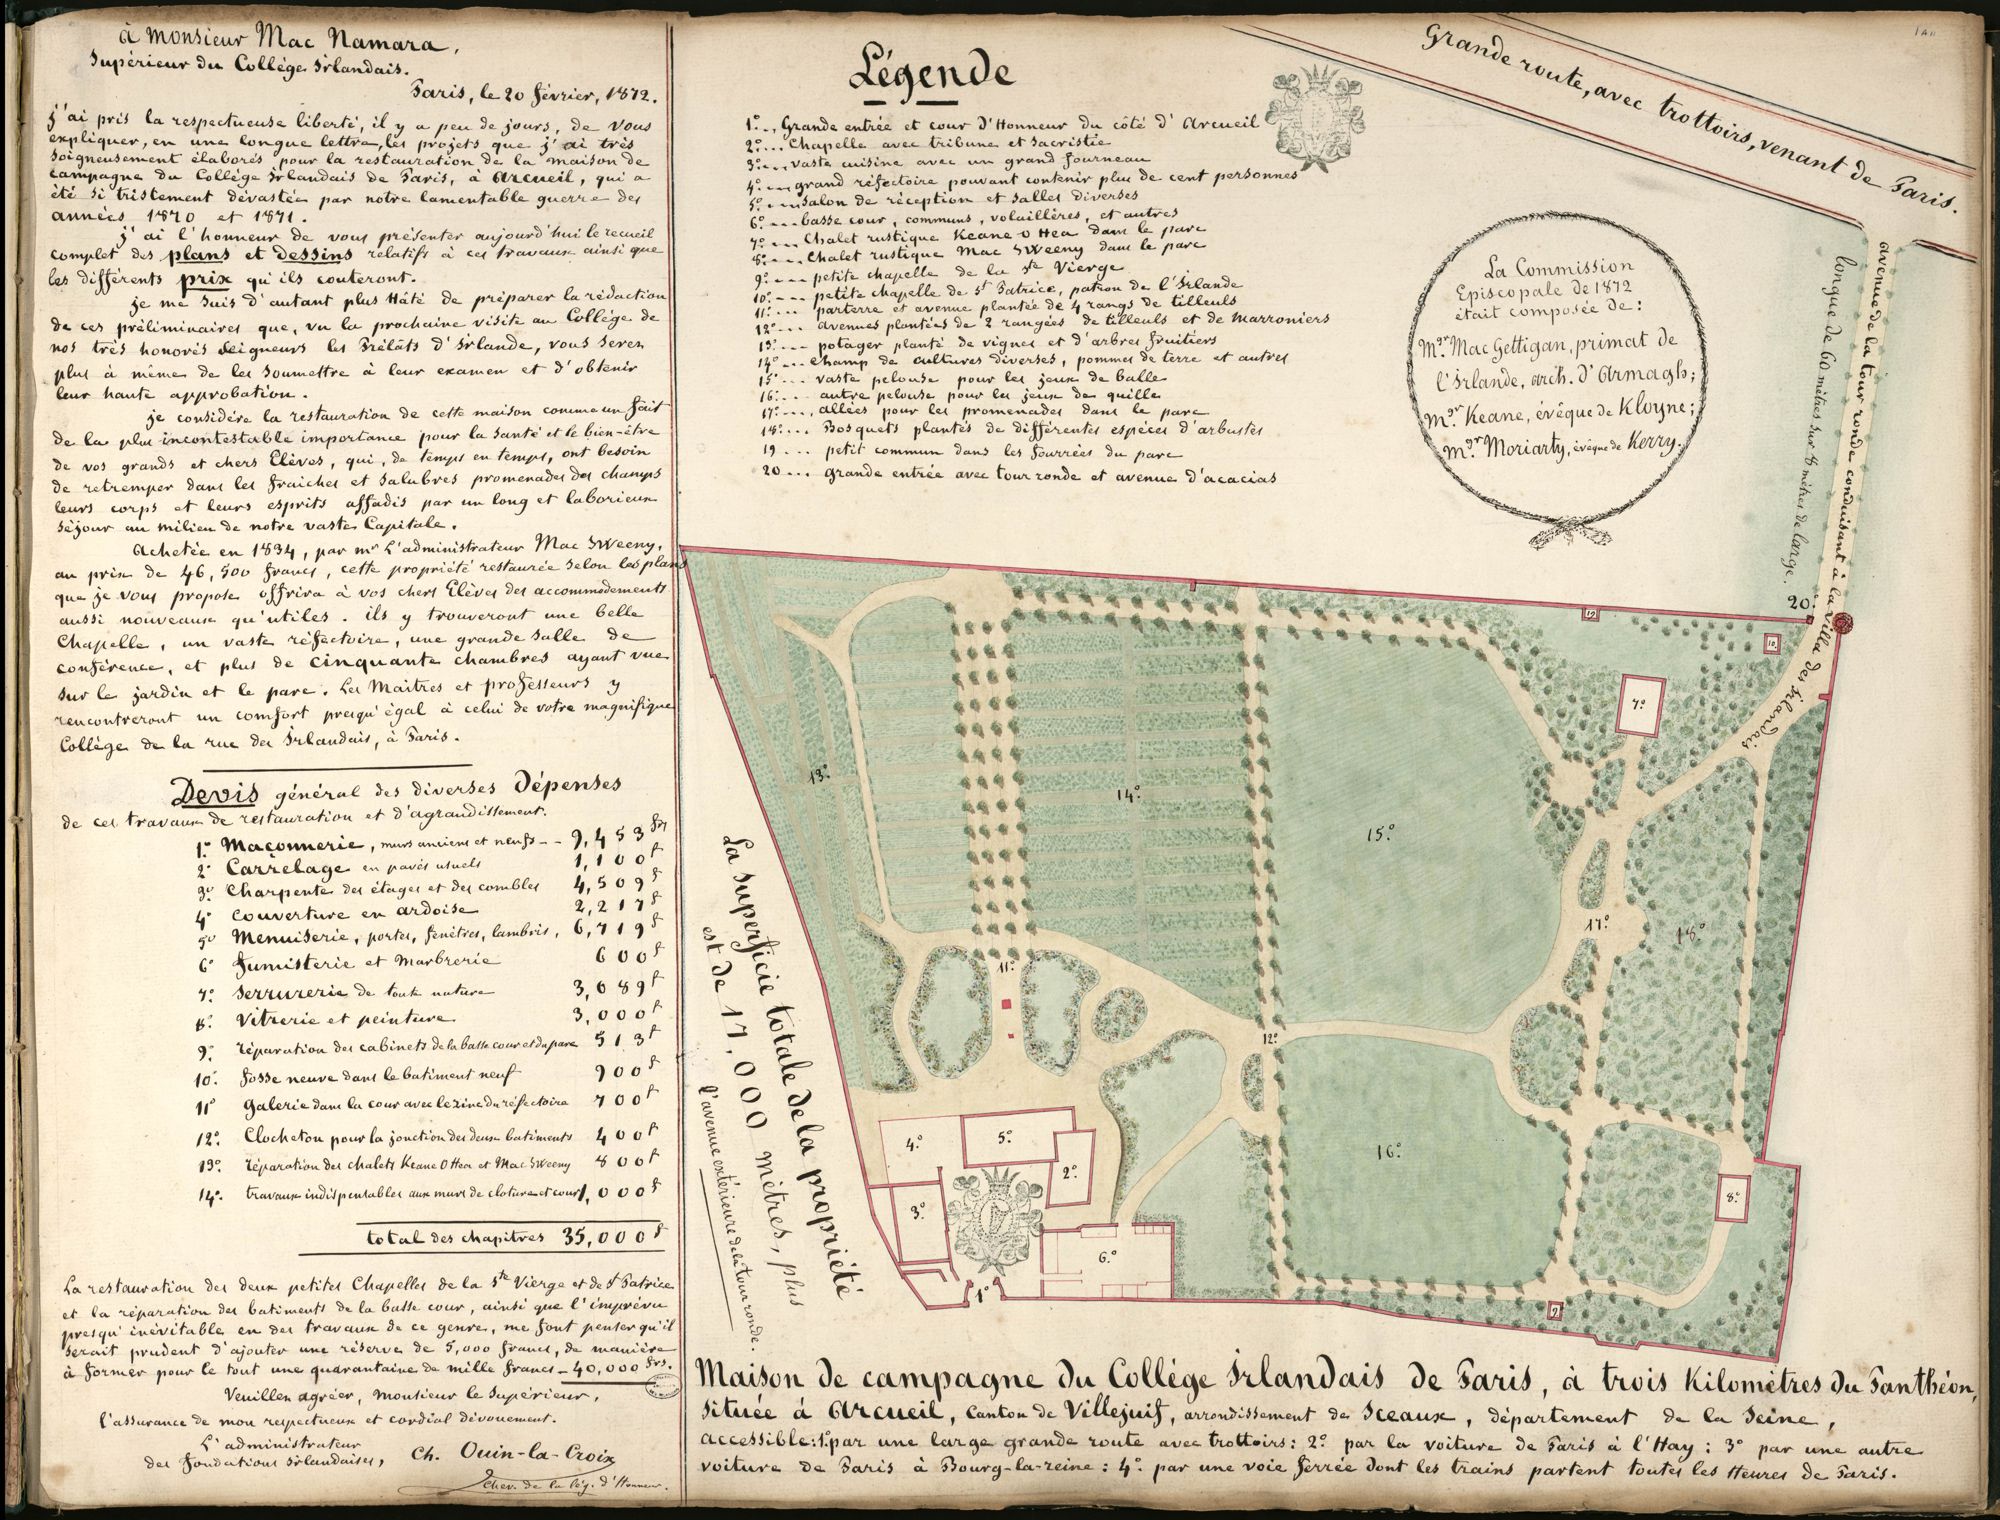 à Monsieur Mac Namara,
Supérieur du Collège Irlandais.
Paris, le 20 février, 1872.
j'ai pris la respectueuse liberté, il y a peu de jours, de vous
expliquer, en une longue lettre, les projets que j'ai très
soigneusement élaborés pour la restauration de la maison de
campagne du Collége Irlandais de Paris, à Arcueil, qui a
été si tristement dévastée par notre lamentable guerre des
années 1870 et 1871.
j'ai l'honneur de vous présenter aujourd'hui le recueil
complet des plans et dessins relatifs à ces travaux ainsi que
les différents prix qu'ils couteront.
je me suis d'autant plus Hâté de préparer la rédaction
de ces préliminaires que, vu la prochaine visite au Collége de
nos très honorés Seigneurs les Prélâts d'Irlande, vous serez
plus à même de les soumettre à leur examen et d'obtenir
leur haute approbation.
je considère la restauration de cette maison comme un fait
de la plus incontestable importance pour la santé et le bien-être
de vos grands et chers Elèves, qui, de temps en temps, ont besoin
de retremper dans les fraiches et salubres promenades des champs
leurs corps et leurs esprits affadis par un long et laborieux
séjour au milieu de notre vaste Capitale.
Achetée en 1834, par mr L'administrateur Mac Sweeny,
au prix de 46,500 francs, cette propriété restaurée selon les plans
que je vous propose offrira à vos chers Elèves des accommodements
aussi nouveaux qu'utiles. ils y trouveront une belle
Chapelle, un vaste réfectoire, une grande salle de
conférence, et plus de cinquante chambres ayant vue
sur le jardin et le parc. Les Maitres et professeurs y
rencontreront un comfort presqu'égal à celui de votre magnifique
Collége de la rue des Irlandais, à Paris.
Devis général des diverses Dépenses
de ces travaux de restauration et d'agrandissement.
1º. Maçonnerie, murs anciens et neufs -- 9,453 frs
2º Carrelage en pavés usuels 1,100 f
3º Charpente des étages et des combles 4,509 f
4º Couverture en ardoise 2,217 f
5º Menuiserie, portes, fenêtres, lambris, 6,719 f
6º fumisterie et Marbrerie 600 f
7º Serrurerie de toute nature 3,089 f
8º. Vitrerie et peinture 3,000 f
9º. réparation des cabinets de la basse cour et du parc 513 f
10º. fosse neuve dans le batiment neuf 900 f
11º Galerie dans la cour avec le zinc du réfectoire 700 f
12º. Clocheton pour la jonction des deux batiments 400 f
13º. réparation des chalets Keane O Hea et Mac Sweeny 800 f
14º. travaux indispensables aux murs de cloture et cour 1,000 f
total des chapitres 35,000 f
La restauration des deux petites Chapelles de la Ste Vierge et de St Patrice
et la réparation des batiments de la basse cour, ainsi que l'imprévu
presqu'inévitable en des travaux de ce genre, me font penser qu'il
serait prudent d'ajouter une réserve de 5,000 francs, de manière
à former pour le tout une quarantaine de mille francs - 40,000 frs.
Veuillez agréer, Monsieur le Supérieur,
l'assurance de mon respectueux et cordial dévouement.
L'administrateur
des fondations irlandaises, Ch. Ouin-la-Croix
Chev. de la lég. d'Honneur.
Légende
1º.., Grande entrée et cour d'Honneur du côté d'Arcueil
2º... Chapelle avec tribune et sacristie
3º... vaste cuisine avec un grand fourneau
4º... grand réfectoire pouvant contenir plus de cent personnes
5º... Salon de réception et salles diverses
6º... basse cour, communs, volaillères, et autres
7º... Chalet rustique Keane O Hea dans le parc
8º... Chalet rustique Mac Sweeny dans le parc
9º... petite chapelle de la Ste Vierge
10º... petite chapelle de St Patrice, patron de l'Irlande
11º... parterre et avenue plantée de 4 rangs de tilleuls
12º... avenues plantées de 2 rangées de tilleuls et de Marroniers
13º... potager planté de vignes et d'arbres fruitiers
14º... Champ de cultures diverses, pommes de terre et autres
15º... vaste pelouse pour les jeux de balle
16º... autre pelouse pour les jeux de quille
17º..., allées pour les promenades dans le parc
18º... Bosquets plantés de différentes espèces d'arbustes
19... petit commun dans les fourrées du parc
20... grande entrée avec tour ronde et avenue d'acacias
Grande route, avec trottoirs, venant de Paris.
La Commission
Episcopale de 1872
était composée de:
Mgr. Mac Gettigan, primat de
l'Irlande, arch. d'Armagh;
Mgr. Keane, évêque de Kloyne;
Mgr. Moriarty, évêque de Kerry.
avenue de la tour ronde conduisant à la villa des Irlandais
longue de 60 mètres sur 8 mètres de large.
20.
19
10.
7º.
13º
14º
15º.
17º.
18º.
11º.
12º.
16º.
4º.
5º.
2º.
3º.
6º
8º.
1º
9
La superficie totale de la propriété
est de 17,000 mètres, plus
l'avenue extérieure de la tour ronde.
Maison de campagne du Collége Irlandais de Paris, à trois Kilomètres du Panthéon,
Située à Arcueil, Canton de Villejuif, arrondissement de Sceaux, département de la Seine,
accessible: 1º. par une large grande route avec trottoirs: 2º. par la voiture de Paris à l'Hay: 3º par une autre
voiture de Paris à Bourg-la-reine: 4º. par une voie ferrée dont les trains partent toutes les Heures de Paris.